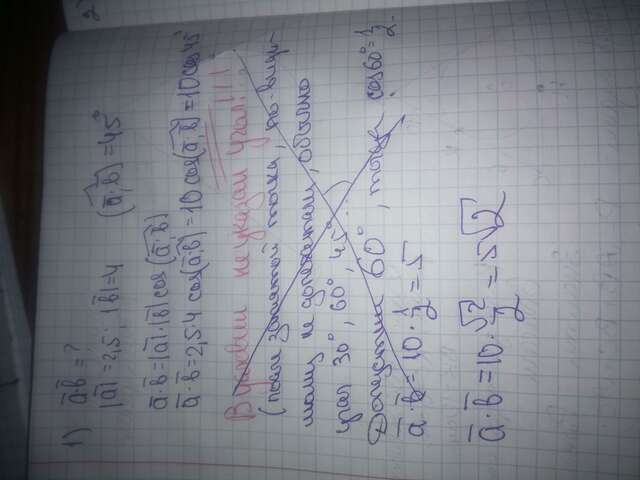 1) a̅·b̅ = ?
|a̅| = 2,5; |b̅| = 4 (a̅;b̅) = 45°
a̅·b̅ = |a̅|·|b̅| cos(a̅;b̅)
a̅·b̅ = 2,5·4 cos(a̅;b̅) = 10 cos(a̅;b̅) = 10 cos45°
В условии не указан угол!!!
(после запятой точка, по-види-
мому не допечатали, обычно
угол 30°, 60°, 45°.
Допустим 60°, тогда cos60° = 1/2.
a̅·b̅ = 10·1/2 = 5
a̅·b̅ = 10·√2/2 = 5√2